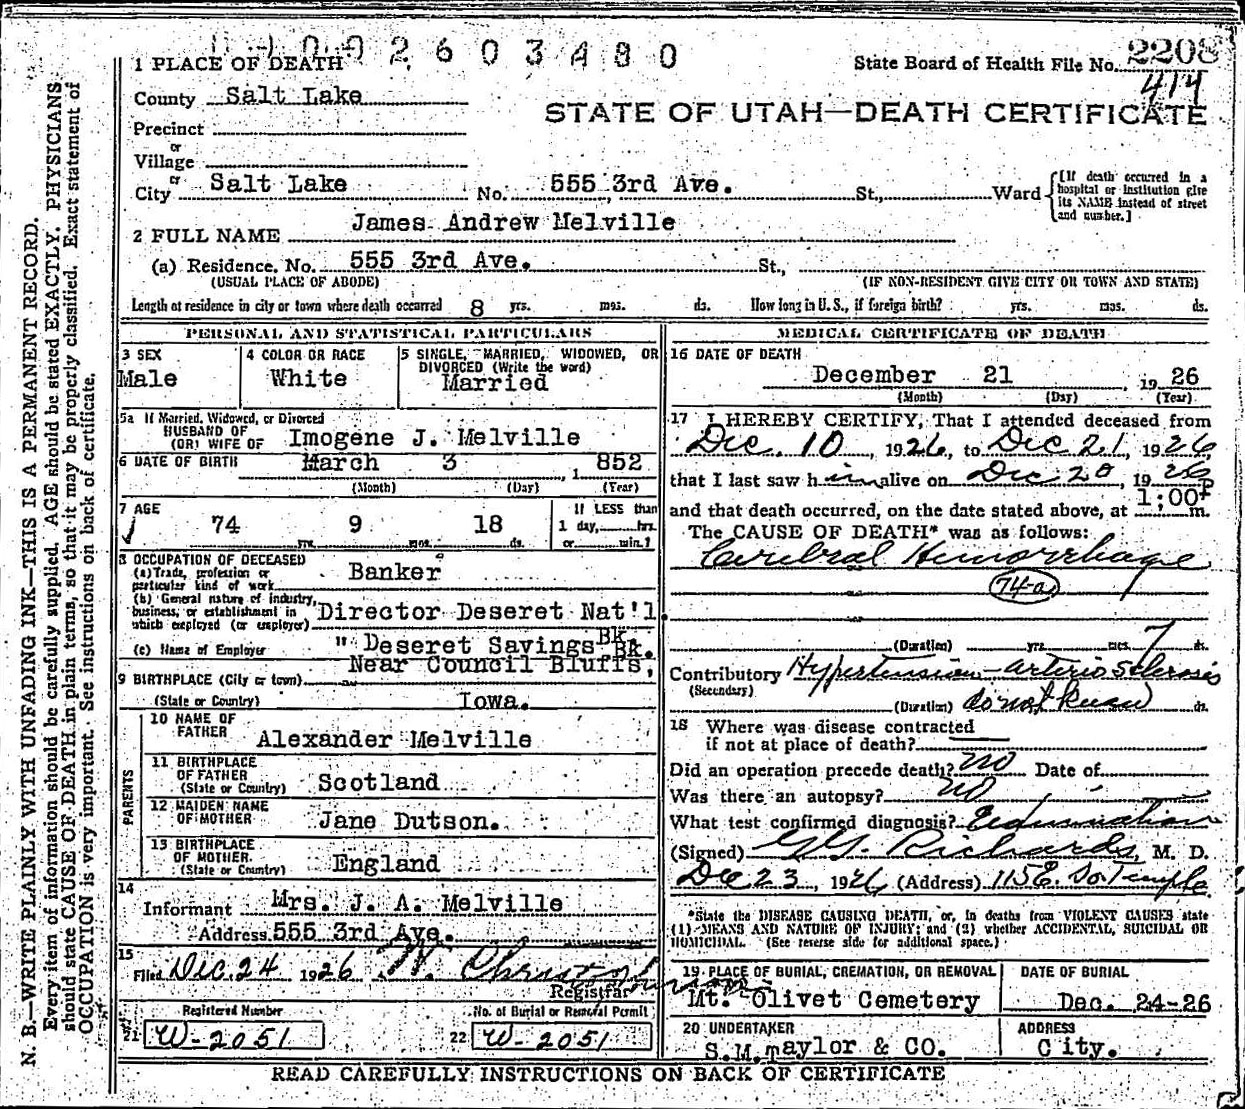 2603480
1 PLACE OF DEATH
State Board of Health File No. 2208
414
County Salt Lake
STATE OF UTAH—DEATH CERTIFICATE
Precinct
or
Village
or
City Salt Lake No. 555 3rd Ave. St., Ward
[If death occurred in a hospital or institution give its NAME instead of street and number.]
2 FULL NAME James Andrew Melville
(a) Residence. No. 555 3rd Ave. St.,
(USUAL PLACE OF ABODE) (IF NON-RESIDENT GIVE CITY OR TOWN AND STATE)
Length of residence in city or town where death occurred 8 yrs. mos. ds. How long in U.S., if foreign birth? yrs. mos. ds.
PERSONAL AND STATISTICAL PARTICULARS
3 SEX
Male
4 COLOR OR RACE
White
5 SINGLE, MARRIED, WIDOWED, OR
DIVORCED (Write the word)
Married
5a If Married, Widowed, or Divorced
HUSBAND OF
(OR) WIFE OF Imogene J. Melville
6 DATE OF BIRTH March 3, 1852
(Month) (Day) (Year)
7 AGE
74 yrs. 9 mos. 18 ds.
If LESS than
1 day, hrs.
or min.?
8 OCCUPATION OF DECEASED
(a) Trade, profession or
particular kind of work Banker
(b) General nature of industry,
business, or establishment in
which employed (or employer) Director Deseret Nat'l. Bk.
(c) Name of Employer " Deseret Savings Bk.
Near Council Bluffs,
9 BIRTHPLACE (City or town)
(State or Country) Iowa.
PARENTS
10 NAME OF
FATHER Alexander Melville
11 BIRTHPLACE
OF FATHER
(State or Country) Scotland
12 MAIDEN NAME
OF MOTHER Jane Dutson.
13 BIRTHPLACE
OF MOTHER.
(State or Country) England
14
Informant Mrs. J. A. Melville
Address 555 3rd Ave.
15
Filed Dec. 24 1926
Registrar
Registered Number
21 W-2051
No. of Burial or Removal Permit
22 W-2051
MEDICAL CERTIFICATE OF DEATH
16 DATE OF DEATH
December 21, 1926
(Month) (Day) (Year)
17 I HEREBY CERTIFY, That I attended deceased from
Dec. 10, 1926, to Dec 21, 1926,
that I last saw him alive on Dec 20, 1926
and that death occurred, on the date stated above, at 1:00 P m.
The CAUSE OF DEATH* was as follows:
Cerebral Hemorrhage
74-a
(Duration) yrs. mos. 7 ds.
Contributory Hypertension - arterio sclerosis
(Secondary)
(Duration) do not know ds.
18 Where was disease contracted
if not at place of death?
Did an operation precede death? no Date of
Was there an autopsy? no
What test confirmed diagnosis? Examination
(Signed) G.G. Richards, M. D.
Dec 23, 1926 (Address) 115 E. So Temple
*State the DISEASE CAUSING DEATH, or, in deaths from VIOLENT CAUSES state
(1) MEANS AND NATURE OF INJURY; and (2) whether ACCIDENTAL, SUICIDAL OR
HOMICIDAL. (See reverse side for additional space.)
19 PLACE OF BURIAL, CREMATION, OR REMOVAL
Mt. Olivet Cemetery
DATE OF BURIAL
Dec. 24-26
20 UNDERTAKER
S.M. Taylor & CO.
ADDRESS
City.
READ CAREFULLY INSTRUCTIONS ON BACK OF CERTIFICATE
N. B.—WRITE PLAINLY WITH UNFADING INK—THIS IS A PERMANENT RECORD.
Every item of information should be carefully supplied. AGE should be stated EXACTLY. PHYSICIANS
should state CAUSE OF DEATH in plain terms, so that it may be properly classified. Exact statement of
OCCUPATION is very important. See instructions on back of certificate.